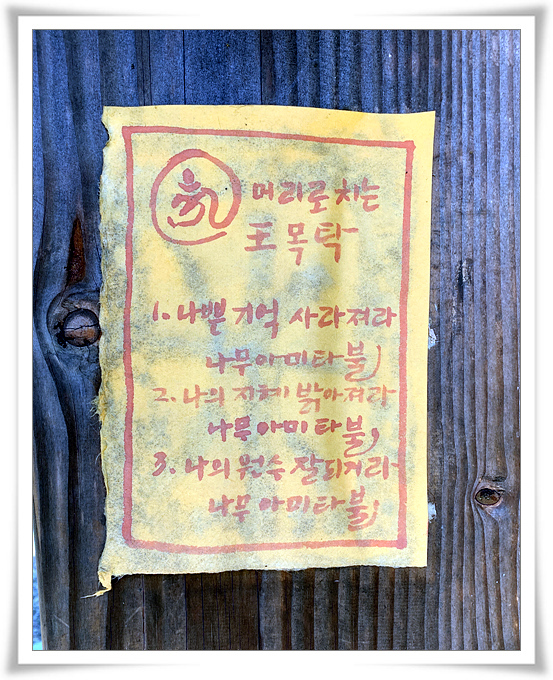 머리로 치는
王 목탁
1. 나쁜 기억 사라져라
나무아미타불,
2. 나의 지혜 밝아져라
나무아미타불,
3. 나의 원수 잘되거라
나무아미타불,